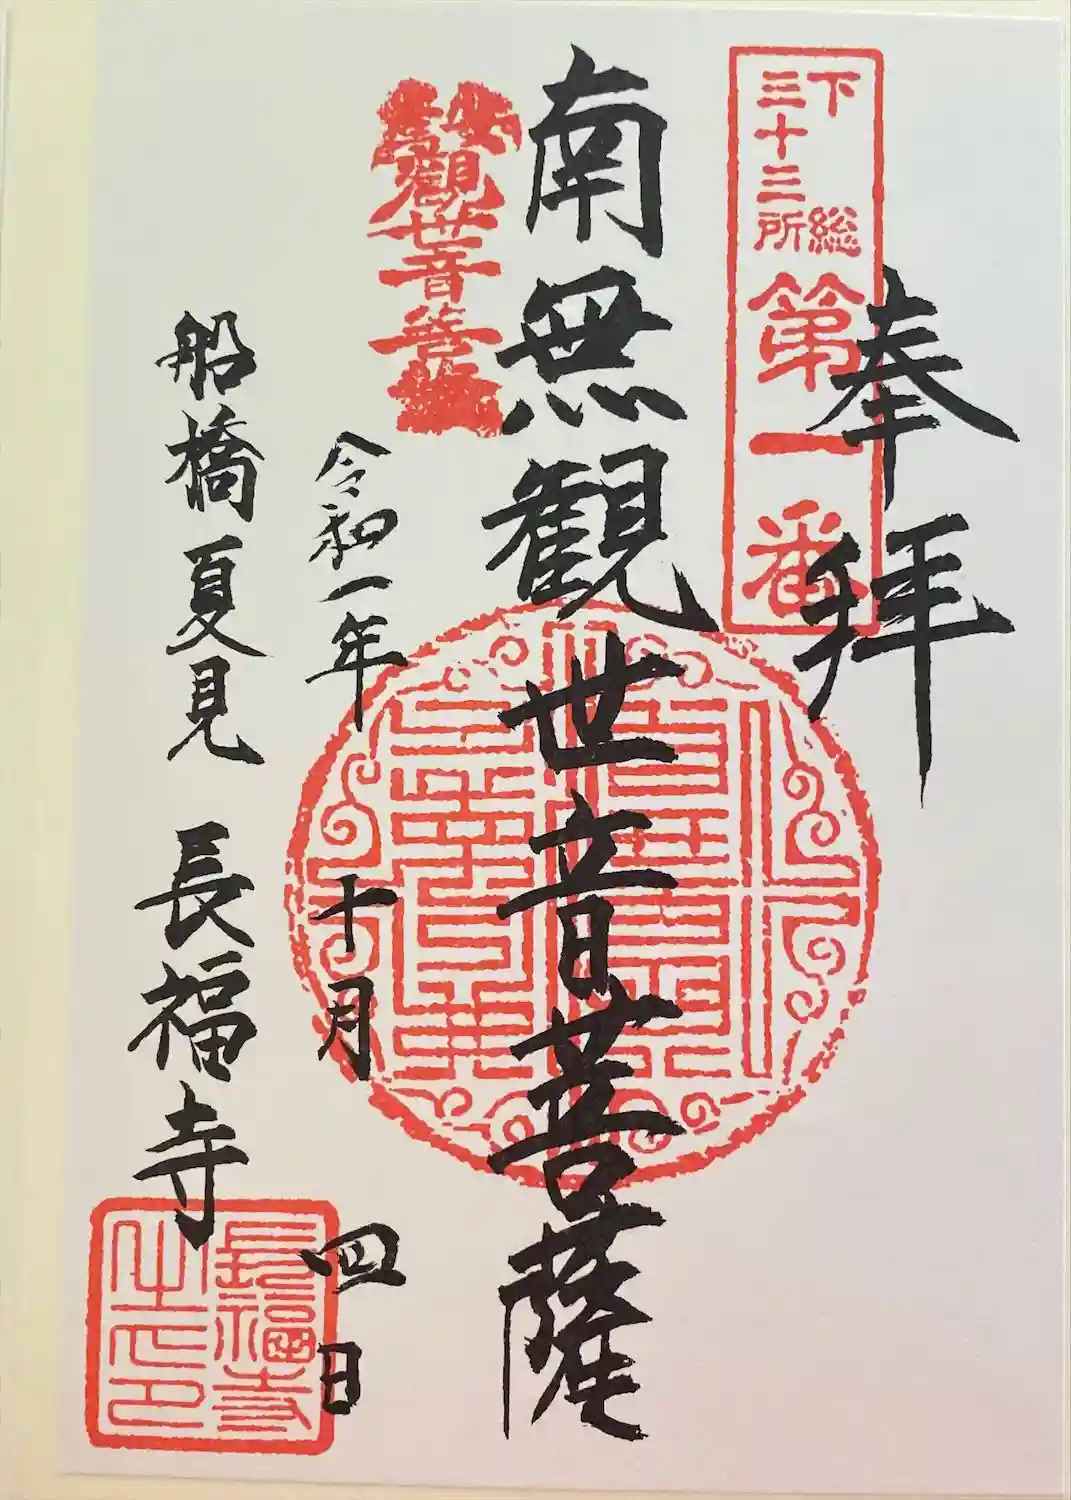 奉拝
下総
三十三所
第一番
南無観世音菩薩
観世音菩薩
令和一年 十月 四日
船橋夏見 長福寺
長福寺
之印